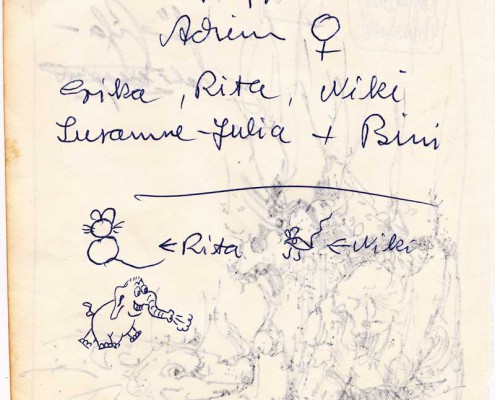 Adrien ♀
Erika, Rita, Niki
Susanne-Julia + Bini
← Rita
← Niki